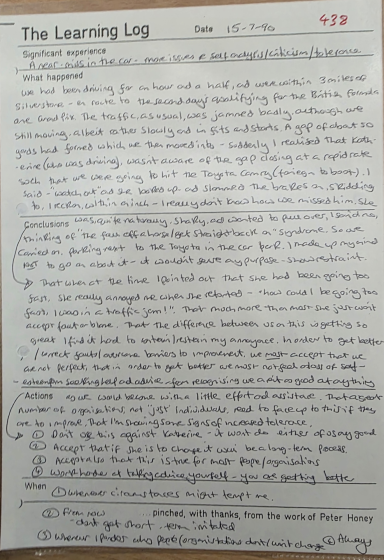 438
The Learning Log Date 15-7-90
Significant experience
A near-miss in the car - more issues re self analysis/criticism/tolerance
What happened
We had been driving for an hour and a half, and were within 3 miles of
Silverstone - en route to the second day's qualifying for the British Formula
one Grand Prix. The traffic, as usual, was jammed badly, although we
still moving, albeit rather slowly and in fits and starts. A gap of about 50
yards had formed which we then moved into - suddenly I realised that Kath-
erine (who was driving), wasn't aware of the gap closing at a rapid rate
such that we were going to hit the Toyota Camry (foreign to boot). I
said - "watch out" and she looked up and slammed the brakes on, skidding
to, I reckon, within an inch - I really don't know how we missed him. She
Conclusions was, quite naturally, shaky, and wanted to pull over, I said no,
thinking of "the fall off a horse/get straight back on" syndrome. So we
carried on. parking next to the Toyota in the car park. I made up my mind
not to go on about it - it wouldn't serve any purpose - show restraint.
That when at the time I pointed out that she had been going too
fast, she really annoyed me when she retorted - "how could I be going too
fast, I was in a traffic jam!". That much more than most she just won't
accept fault or blame. That the difference between us on this is getting so
great I find it hard to contain/restrain my annoyance. In order to get better
/correct faults/overcome barriers to improvement, we must accept that we
are not perfect that in order to get better we must not feel a loss of self-
esteem from seeking help and advice - from recognising we aint as good at anything
Actions as we would become with a little effort and assistance. That a great
number of organisations, not just individuals, need to face up to this if they
are to improve. That I'm showing some signs of increased tolerance.
① Don't use this against Katherine - it wont do either of us any good
② Accept that if she is to change it will be a long-term process
③ Accept also that this is true for most people/organisations
④ Work harder at taking advice yourself - you are getting better
When ① whenever circumstances might tempt me.
② From now ...pinched, with thanks, from the work of Peter Honey
- don't get short-term irritated
③ whenever I ponder why people/organisations don't/won't change ④ Always